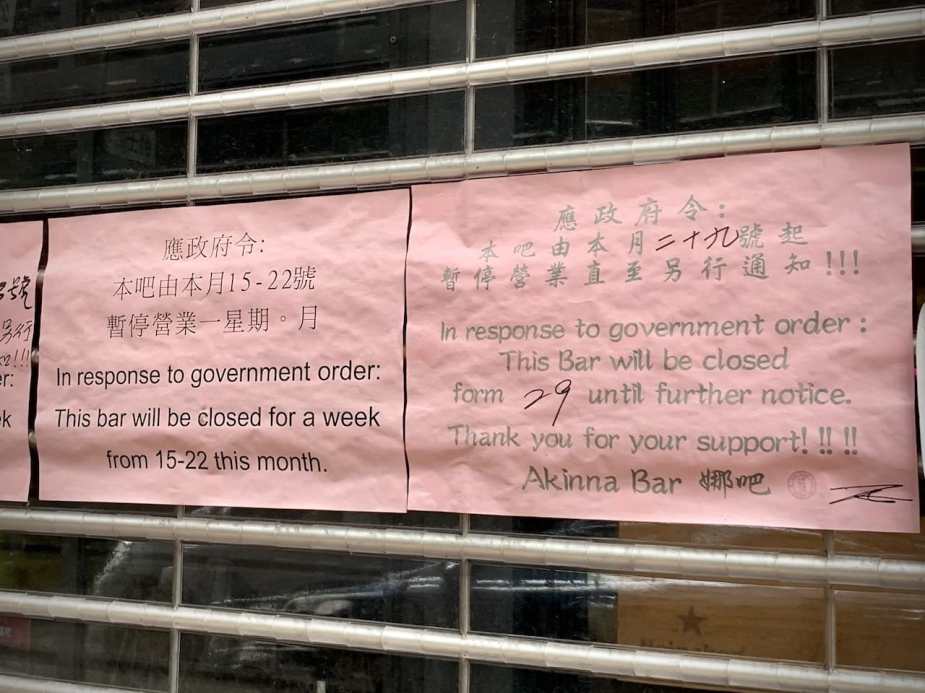 號
另行
!!!
er:
ek
應政府令:
本吧由本月15-22號
暫停營業一星期。月
In response to government order:
This bar will be closed for a week
from 15-22 this month.
應政府令:
本吧由本月二十九號起
暫停營業直至另行通知!!!
In response to government order:
This Bar will be closed
form 29 until further notice.
Thank you for your support! !! !!
Akinna Bar 娜吧